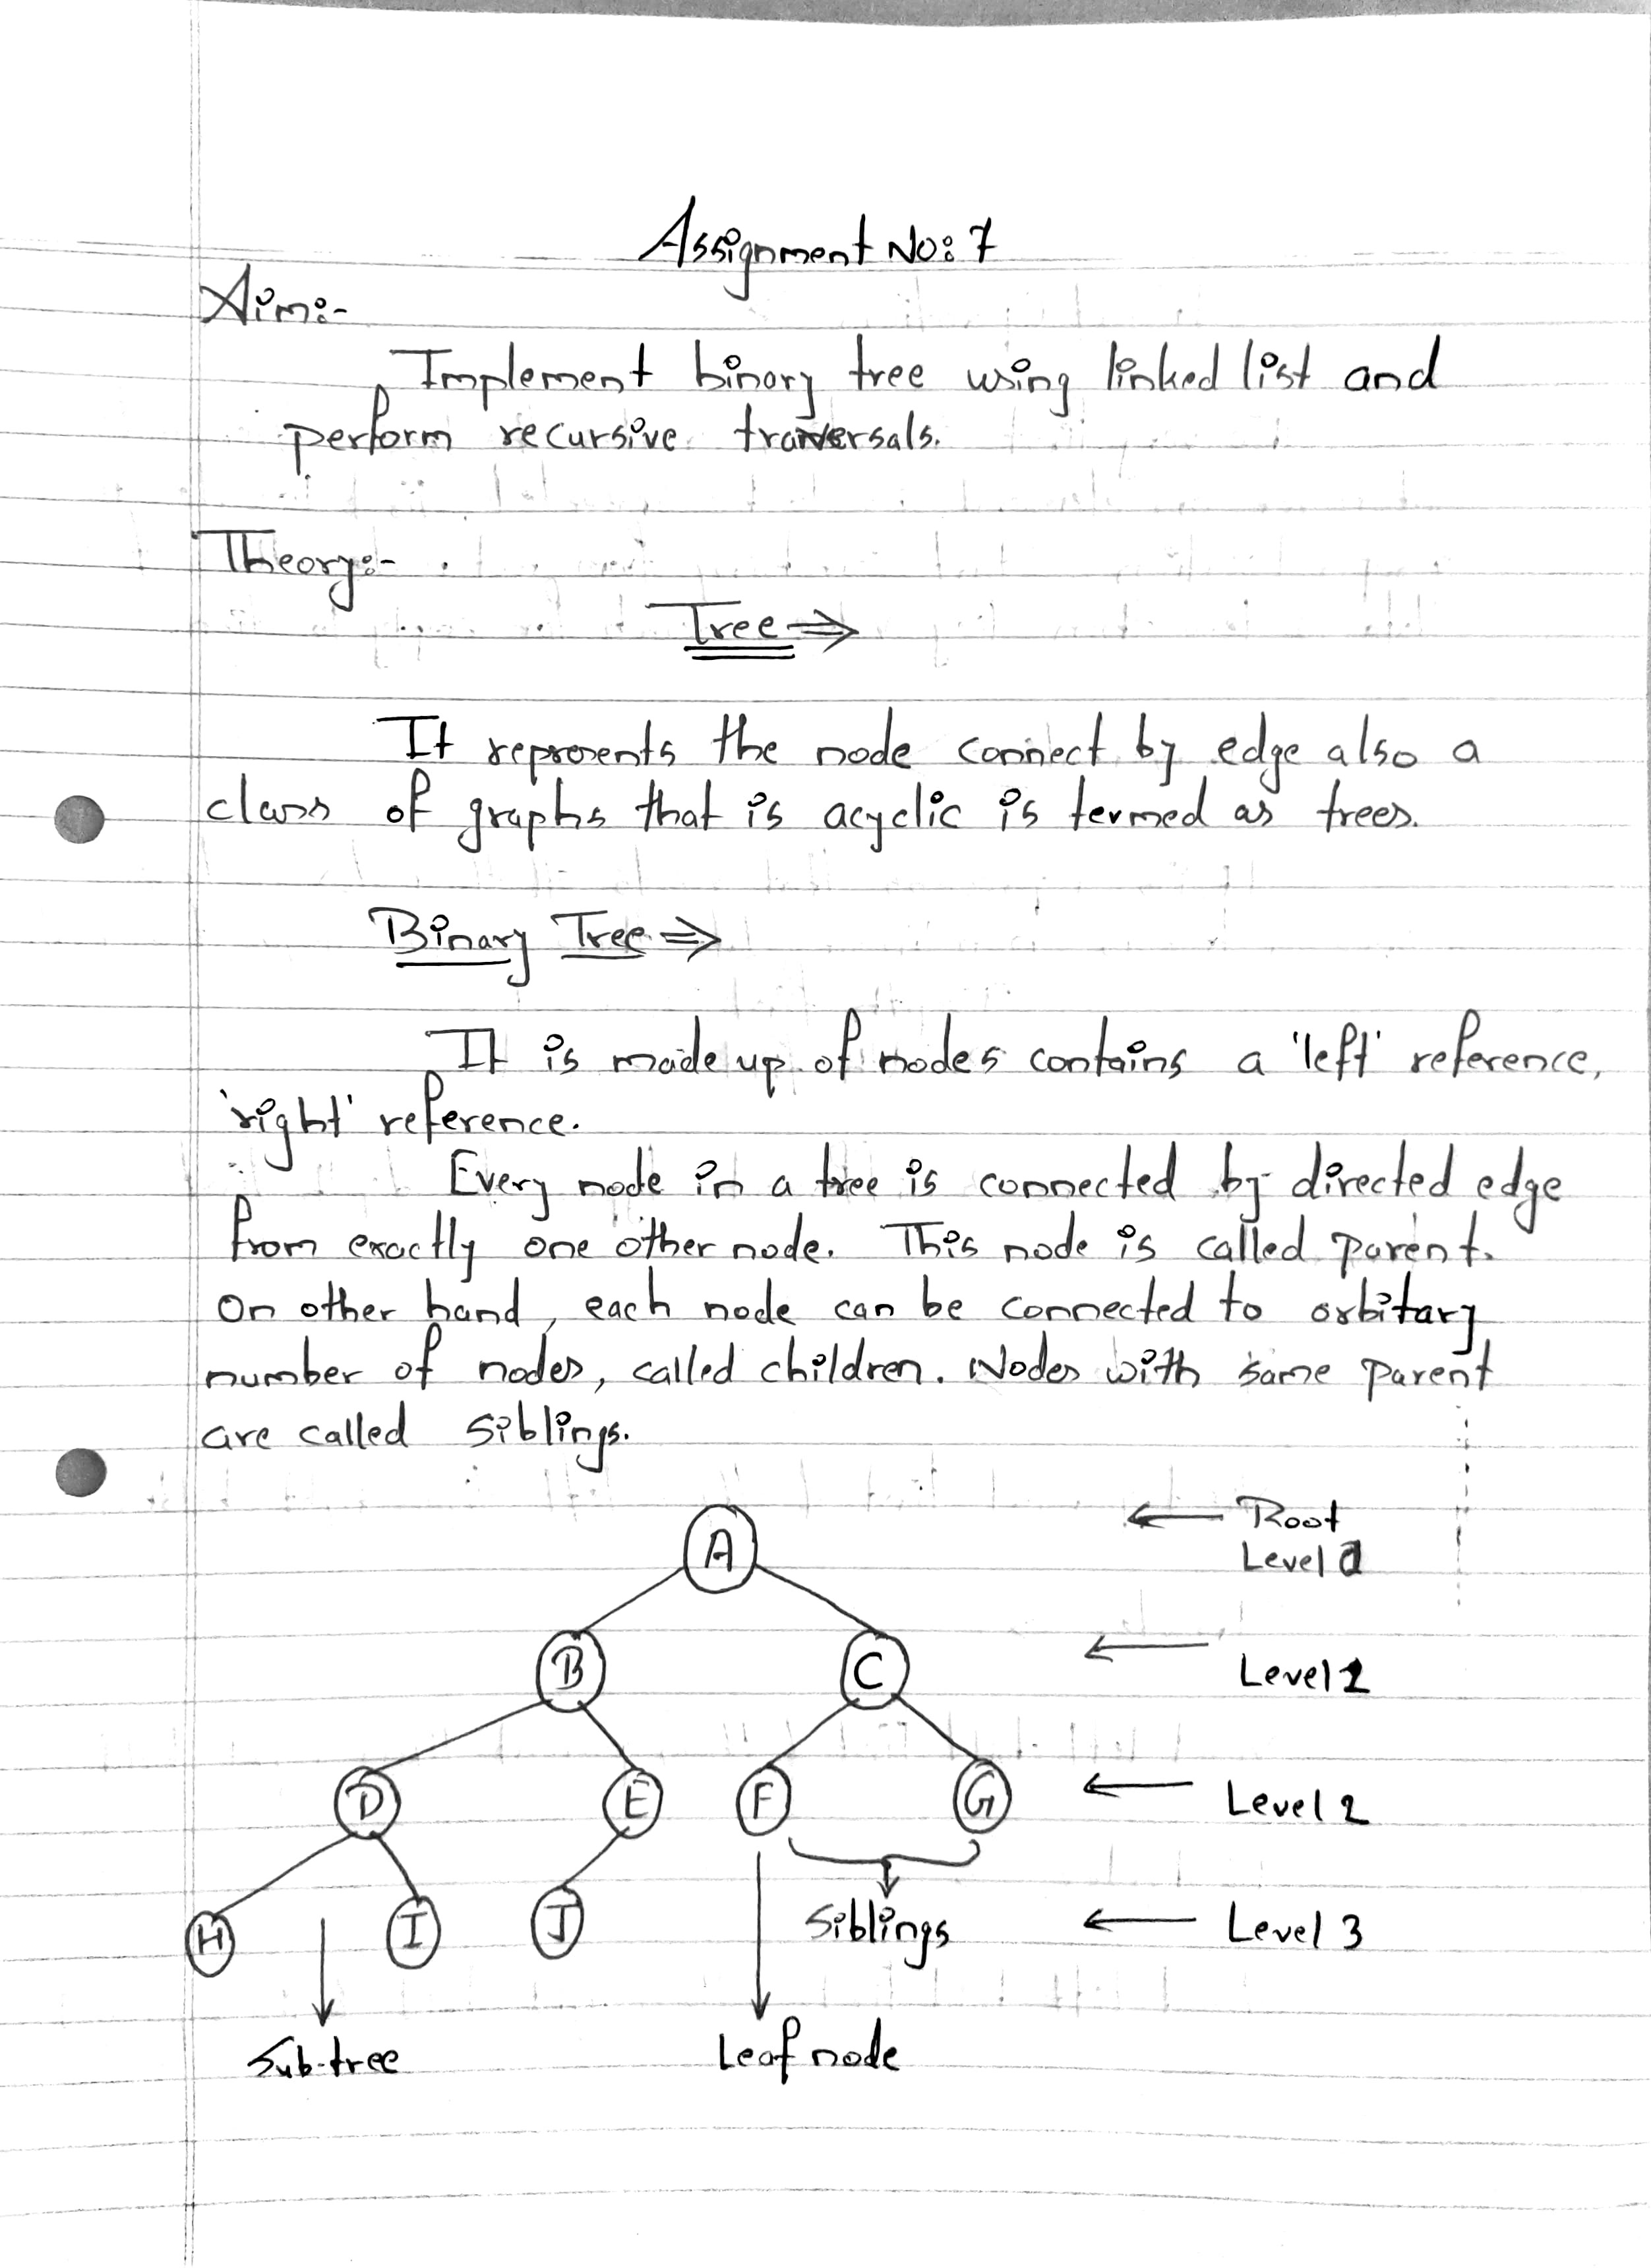 Assignment No: 7
Aim:-
Implement binary tree using linked list and
perform recursive traversals.
Theory:-
Tree ⇒
It represents the node connect by edge also a
class of graphs that is acyclic is termed as trees.
Binary Tree ⇒
It is made up of nodes contains a 'left' reference,
'right' reference.
Every node in a tree is connected by directed edge
from exactly one other node. This node is called parent.
On other hand, each node can be connected to orbitary
number of nodes, called children. Nodes with same parent
are called siblings.
A ← Root
Level 0
B C ← Level 1
D E F G ← Level 2
H I J Siblings ← Level 3
Sub-tree Leaf node